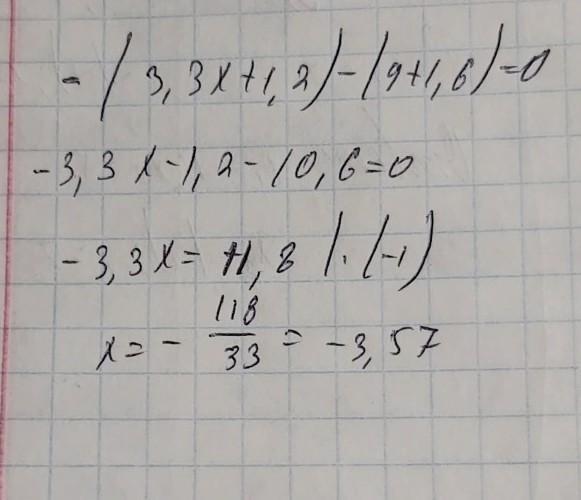 - (3,3x+1,2)-(9+1,6)=0
-3,3x-1,2-10,6=0
-3,3x=11,8 |·(-1)
x=-118/33=-3,57